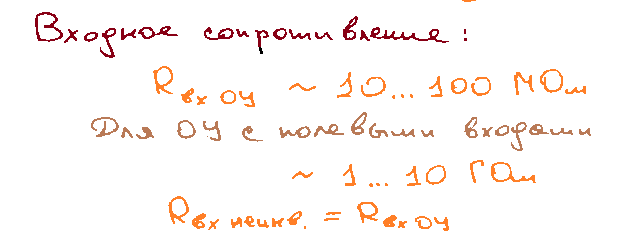 Входное сопротивление:
Rвх ОУ ~ 10...100 МОм
Для ОУ с полевыми входами
~ 1...10 ГОм
Rвх неинв. = Rвх ОУ